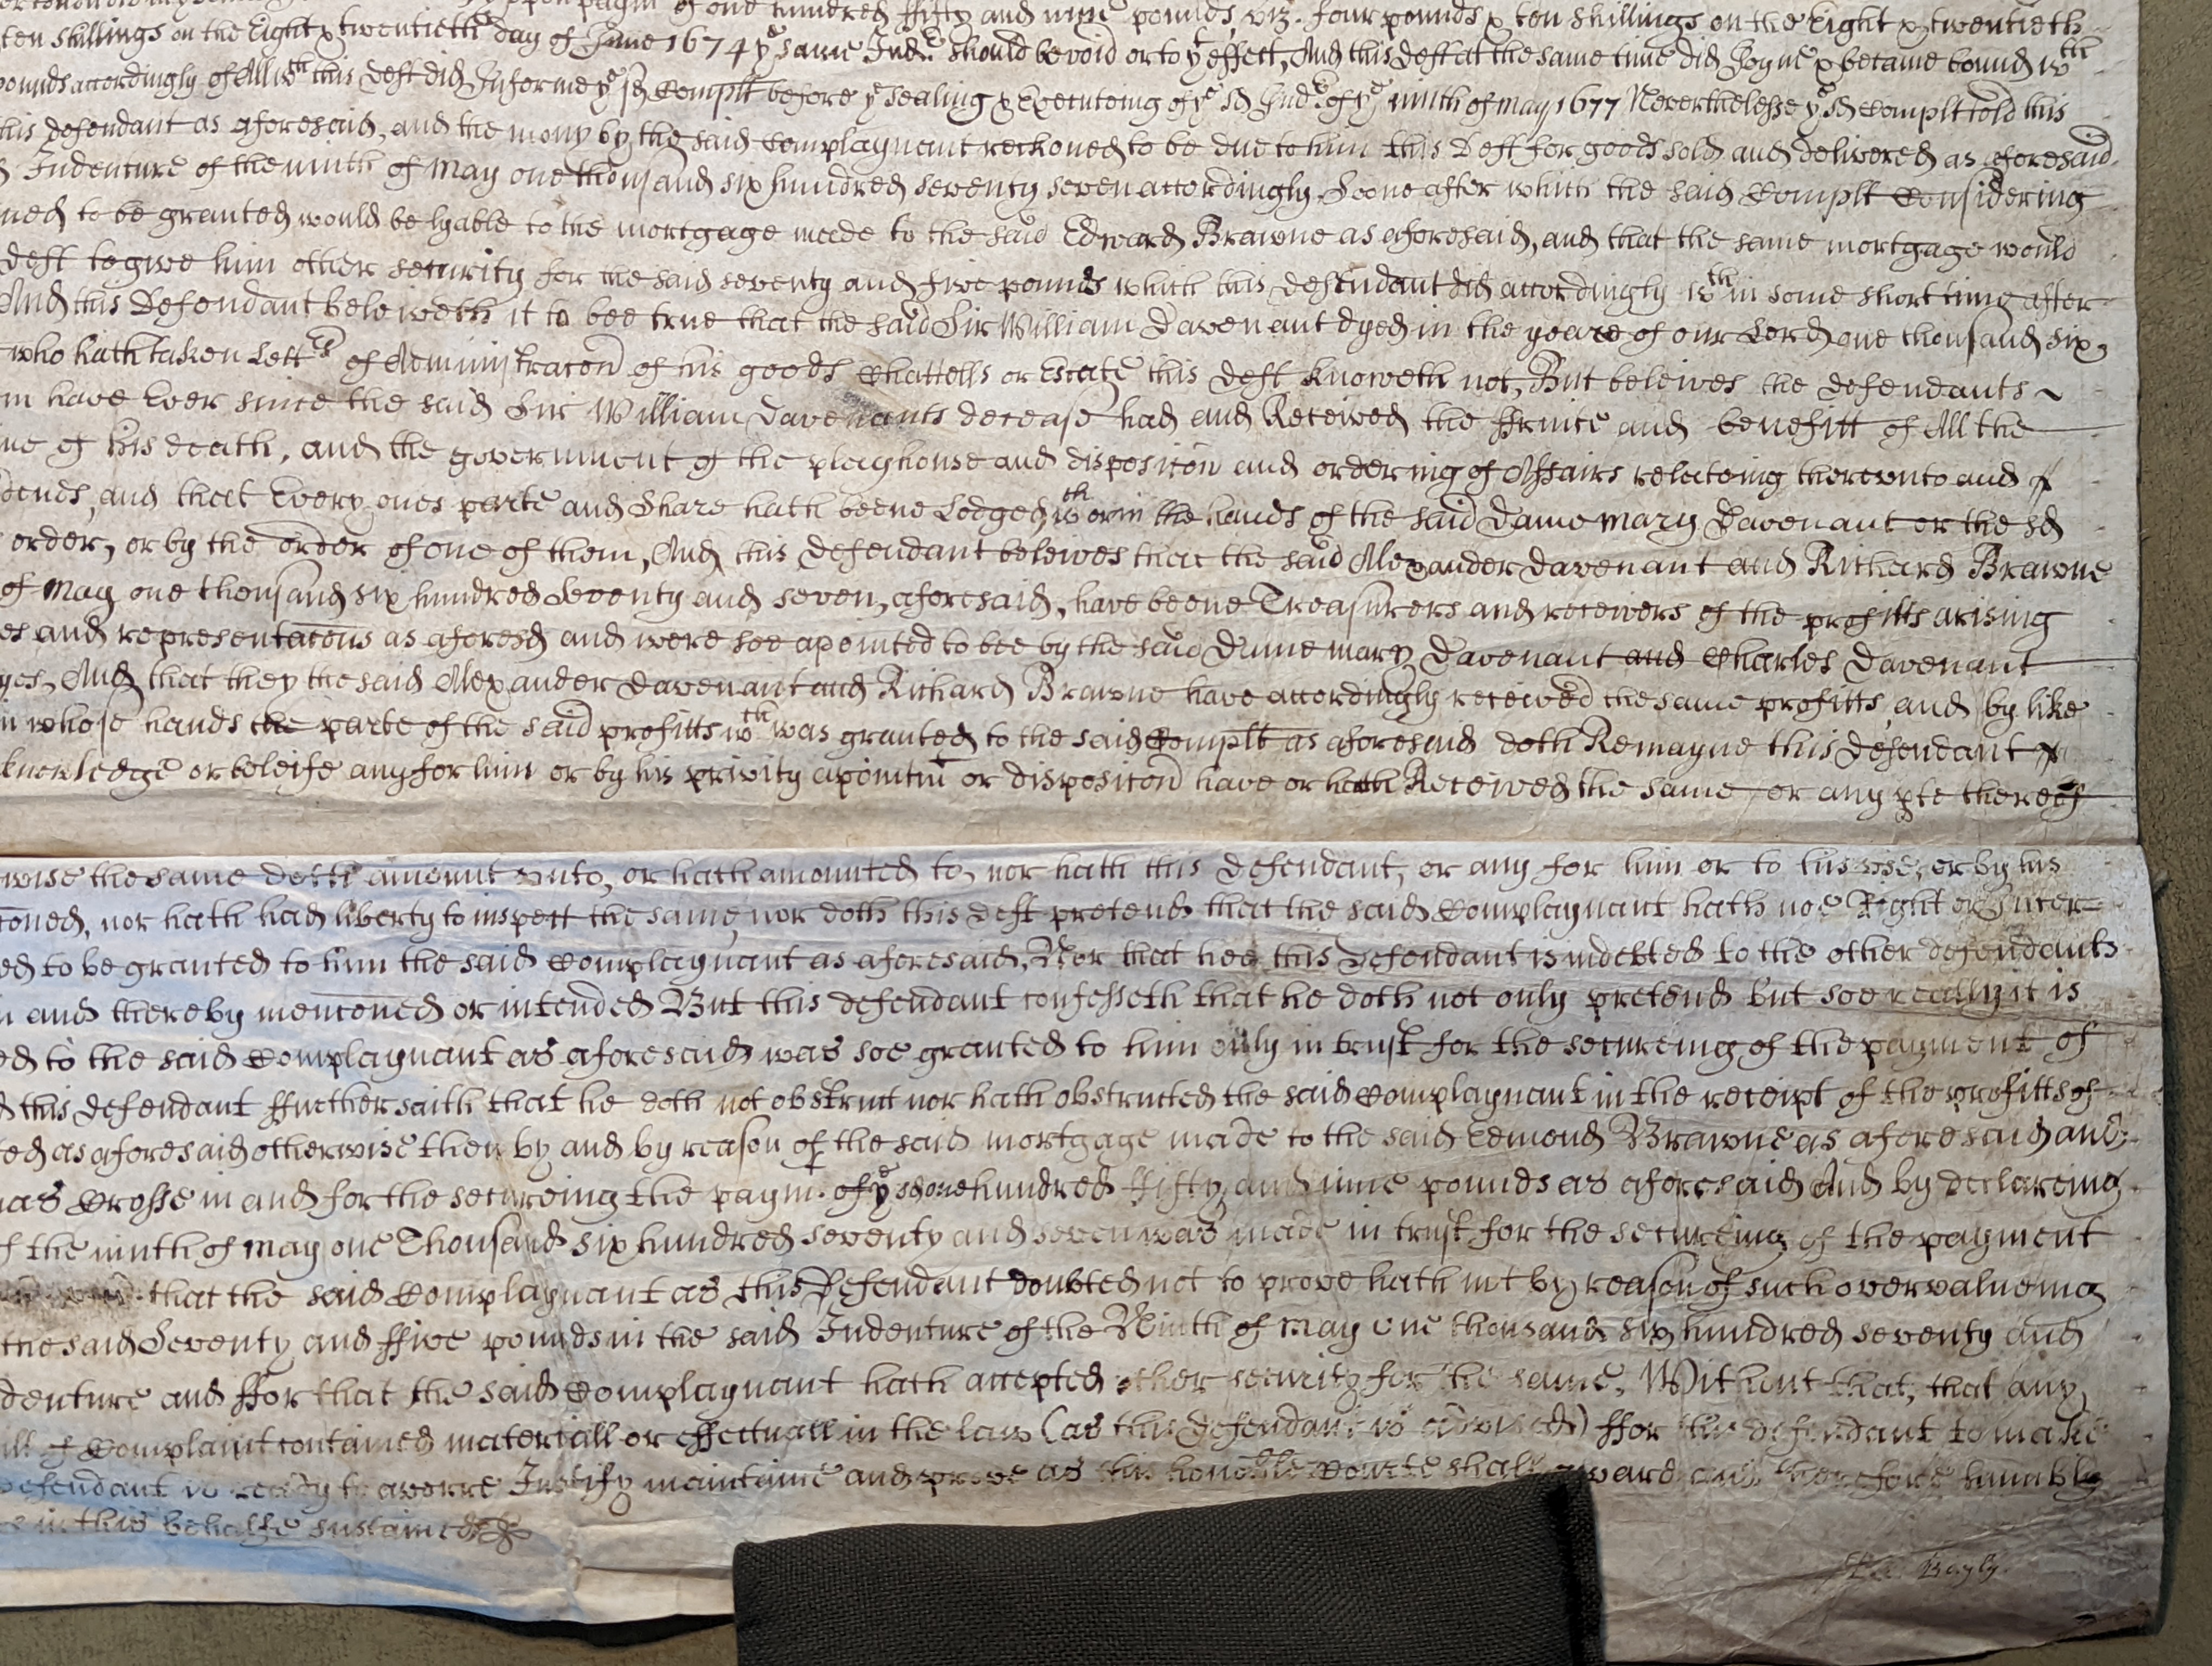 paym of one hundred ffifty and nine pounds, viz. four pounds & ten shillings on the Eight & twentieth
ten shillings on the Eight & twentieth day of June 1674 yᵉ same Indʳᵉ should be void or to yᵗ effect, And this deft at the same time did Joyne & became bound wᵗʰ
pounds accordingly of All wᶜʰ this deft did Informe yᵉ sd Complt before yᵉ sealing & Executeing of yᵉ sd Indʳᵉ of yᵉ ninth of may 1677 Neverthelesse yᵉ sd Complt told this
this defendant as aforesaid, and the mony by the said Complaynant reckoned to be due to him this Deft for goods sold and delivered as aforesaid
Indenture of the ninth of May one thousand six hundred seventy seven accordingly. Soone after which the said Complt Considering
ned to be granted would be lyable to the mortgage made to the said Edward Browne as aforesaid, and that the same mortgage would
deft to give him other security for the said seventy and five pounds which this defendant did accordingly wᵗʰin some short time after
And this Defendant beleiveth it to bee true that the said Sir William Davenant dyed in the yeare of our Lord one thousand six
who hath taken Lettʳˢ of Administracon of his goods Chattells or Estate this deft knoweth not, But beleives the defendants ~
m have Ever since the said Sir William Davenants decease had and Received the ffruite and benefitt of All the
me of his death, and the government of the playhouse and disposicon and ordering of Affairs relateing thereunto and
dends, and that Every ones parte and Share hath beene Lodged wᵗʰ or in the hands of the said Dame mary Davenant or the sd
order, or by the order of one of them, And this defendant beleives that the said Alexander Davenant and Richard Browne
of May one thousand six hundred Seventy and seven, aforesaid, have beene Treasurers and receivers of the profitts arising
es and representacons as aforesd and were soe apointed to bee by the said Dame mary Davenant and Charles Davenant
yes, And that they the said Alexander Davenant and Richard Browne have accordingly received the same profitts, and by like
n whose hands the parte of the said profitts wᶜʰ was granted to the said Complt as aforesaid doth Remayne this defendant
knowledge or beleife any for him or by his privity apointmᵗ or disposicon have or hath Received the same, or any pte thereof
wise the same doth amount unto, or hath amounted to, nor hath this defendant, or any for him or to his use, or by his
coned, nor hath had liberty to inspect the same, nor doth this deft pretend that the said Complaynant hath noe Right or Inter=
ed to be granted to him the said Complaynant as aforesaid, Nor that hee this Defendant is indebted to the other defendants
and thereby menconed or intended But this defendant confesseth that he doth not only pretend but soe really it is
ed to the said Complaynant as aforesaid was soe granted to him only in trust for the secureing of the payment of
d this defendant ffurther saith that he doth not obstruct nor hath obstructed the said Complaynant in the receipt of the profitts of
ted as aforesaid otherwise then by and by reason of the said mortgage made to the said Edmond Browne as aforesaid and
as Crosse in and for the secureing the paymᵗ of yᵉ sd one hundred ffifty and nine pounds as aforesaid And by declareing
f the ninth of May one Thousand six hundred seventy and seven was made in trust for the secureing of the payment
that the said Complaynant as this Defendant doubted not to prove hath not by reason of such overvalueing
the said Seventy and ffive pounds in the said Indenture of the Ninth of May one thousand six hundred seventy and
denture and ffor that the said Complaynant hath accepted other security for the same, Without that, that any
ill of Complaint contained materiall or effectuall in the law (as this defendant is advised) ffor this defendant to make
defendant is ready to averre Justify maintaine and prove as this honoᵇˡᵉ Courte shall award and therefore humbly
in this behalfe sustained &c
Bayly.